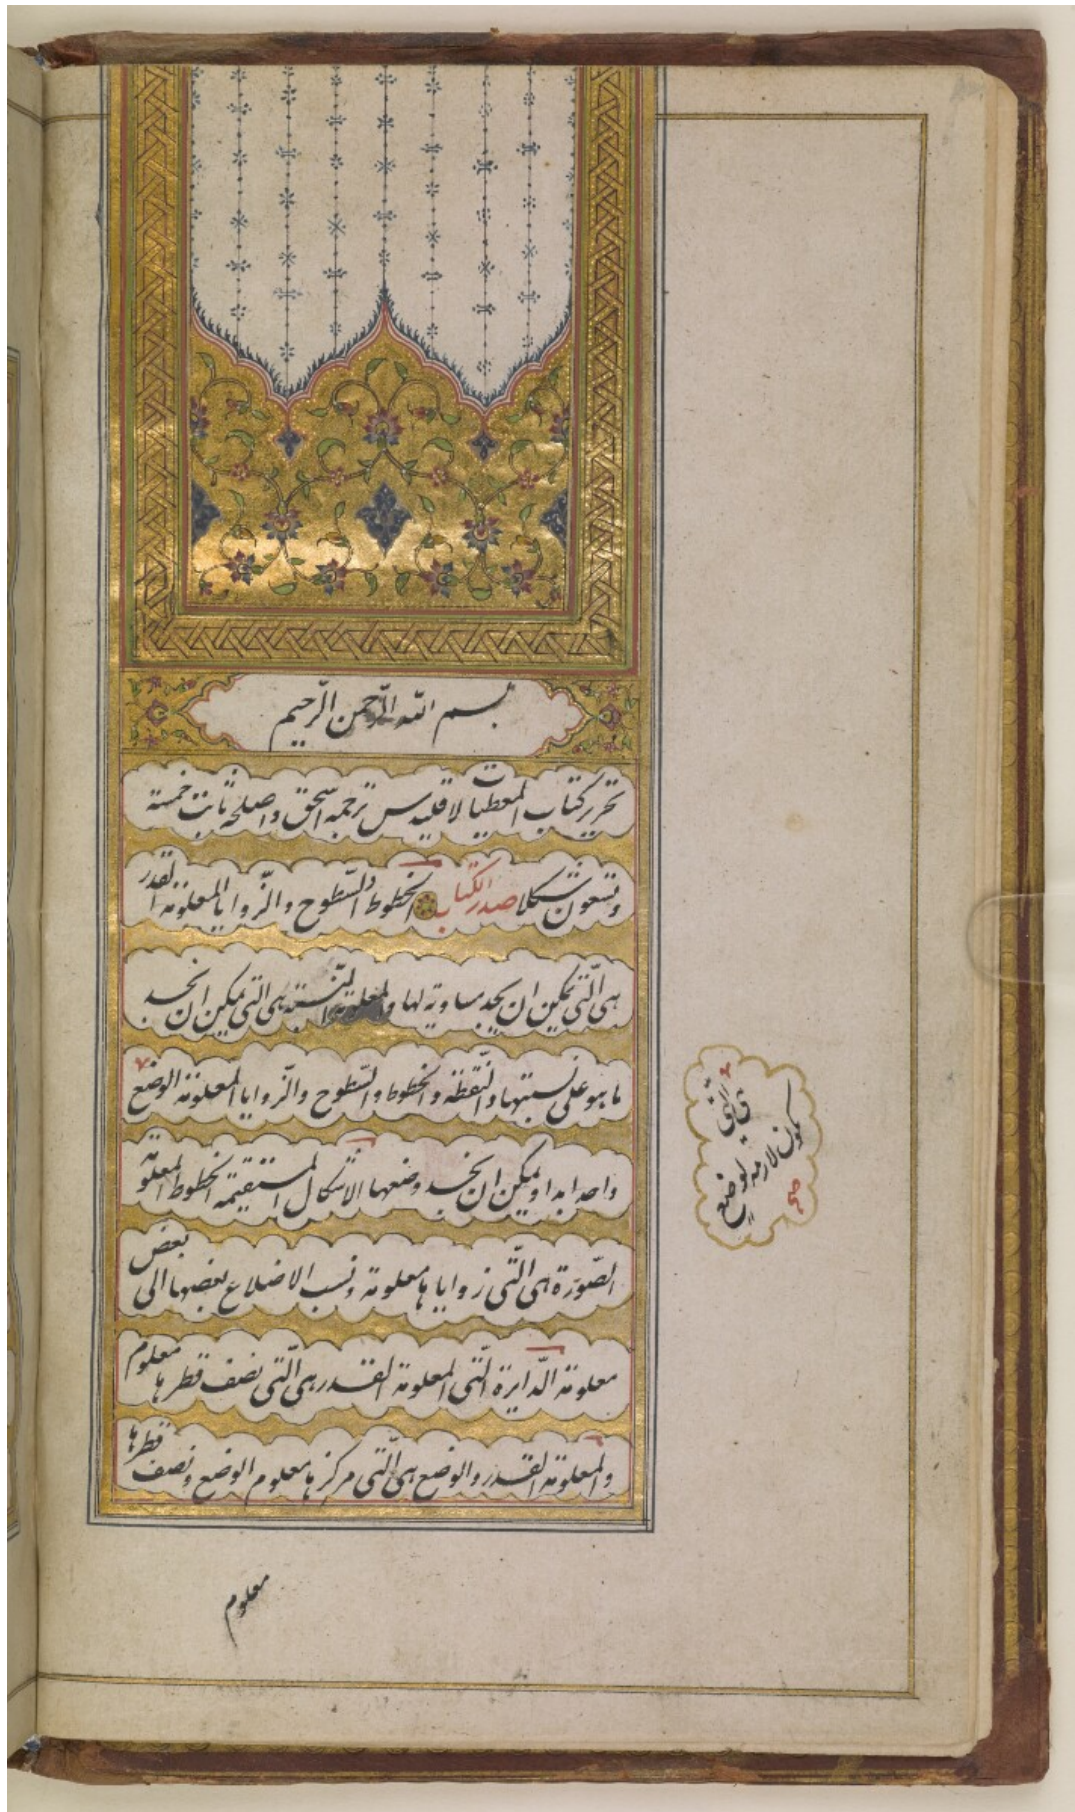 بسم الله الرّحمن الرّحیم
تحریر کتاب المعطیات لاقلیدس ترجمه اسحق واصلحه ثابت خمسة
وتسعون شکلا صدر الکتاب الخطوط والسّطوح والزّوایا المعلومة القدر
هی الّتی یمکن ان یجد مساویة لها والمعلومة النّسبة هی التی یمکن ان نجد
ما هو علی نسبتها والنّقطة والخطوط والسّطوح والزّوایا المعلومة الوضع
واحدا ابدا ویمکن ان نجد وضعها الاشکال المستقیمة الخطوط المعلومة
الصّورة هی الّتی زوایاها معلومة ونسب الاضلاع بعضها الی بعض
معلومة الدّایرة الّتی المعلومة القدر هی الّتی نصف قطرها معلوم
والمعلومة القدر والوضع هی الّتی مرکزها معلوم الوضع ونصف قطرها
هی الّتی
یکون لازمه لوضع
صح
معلوم